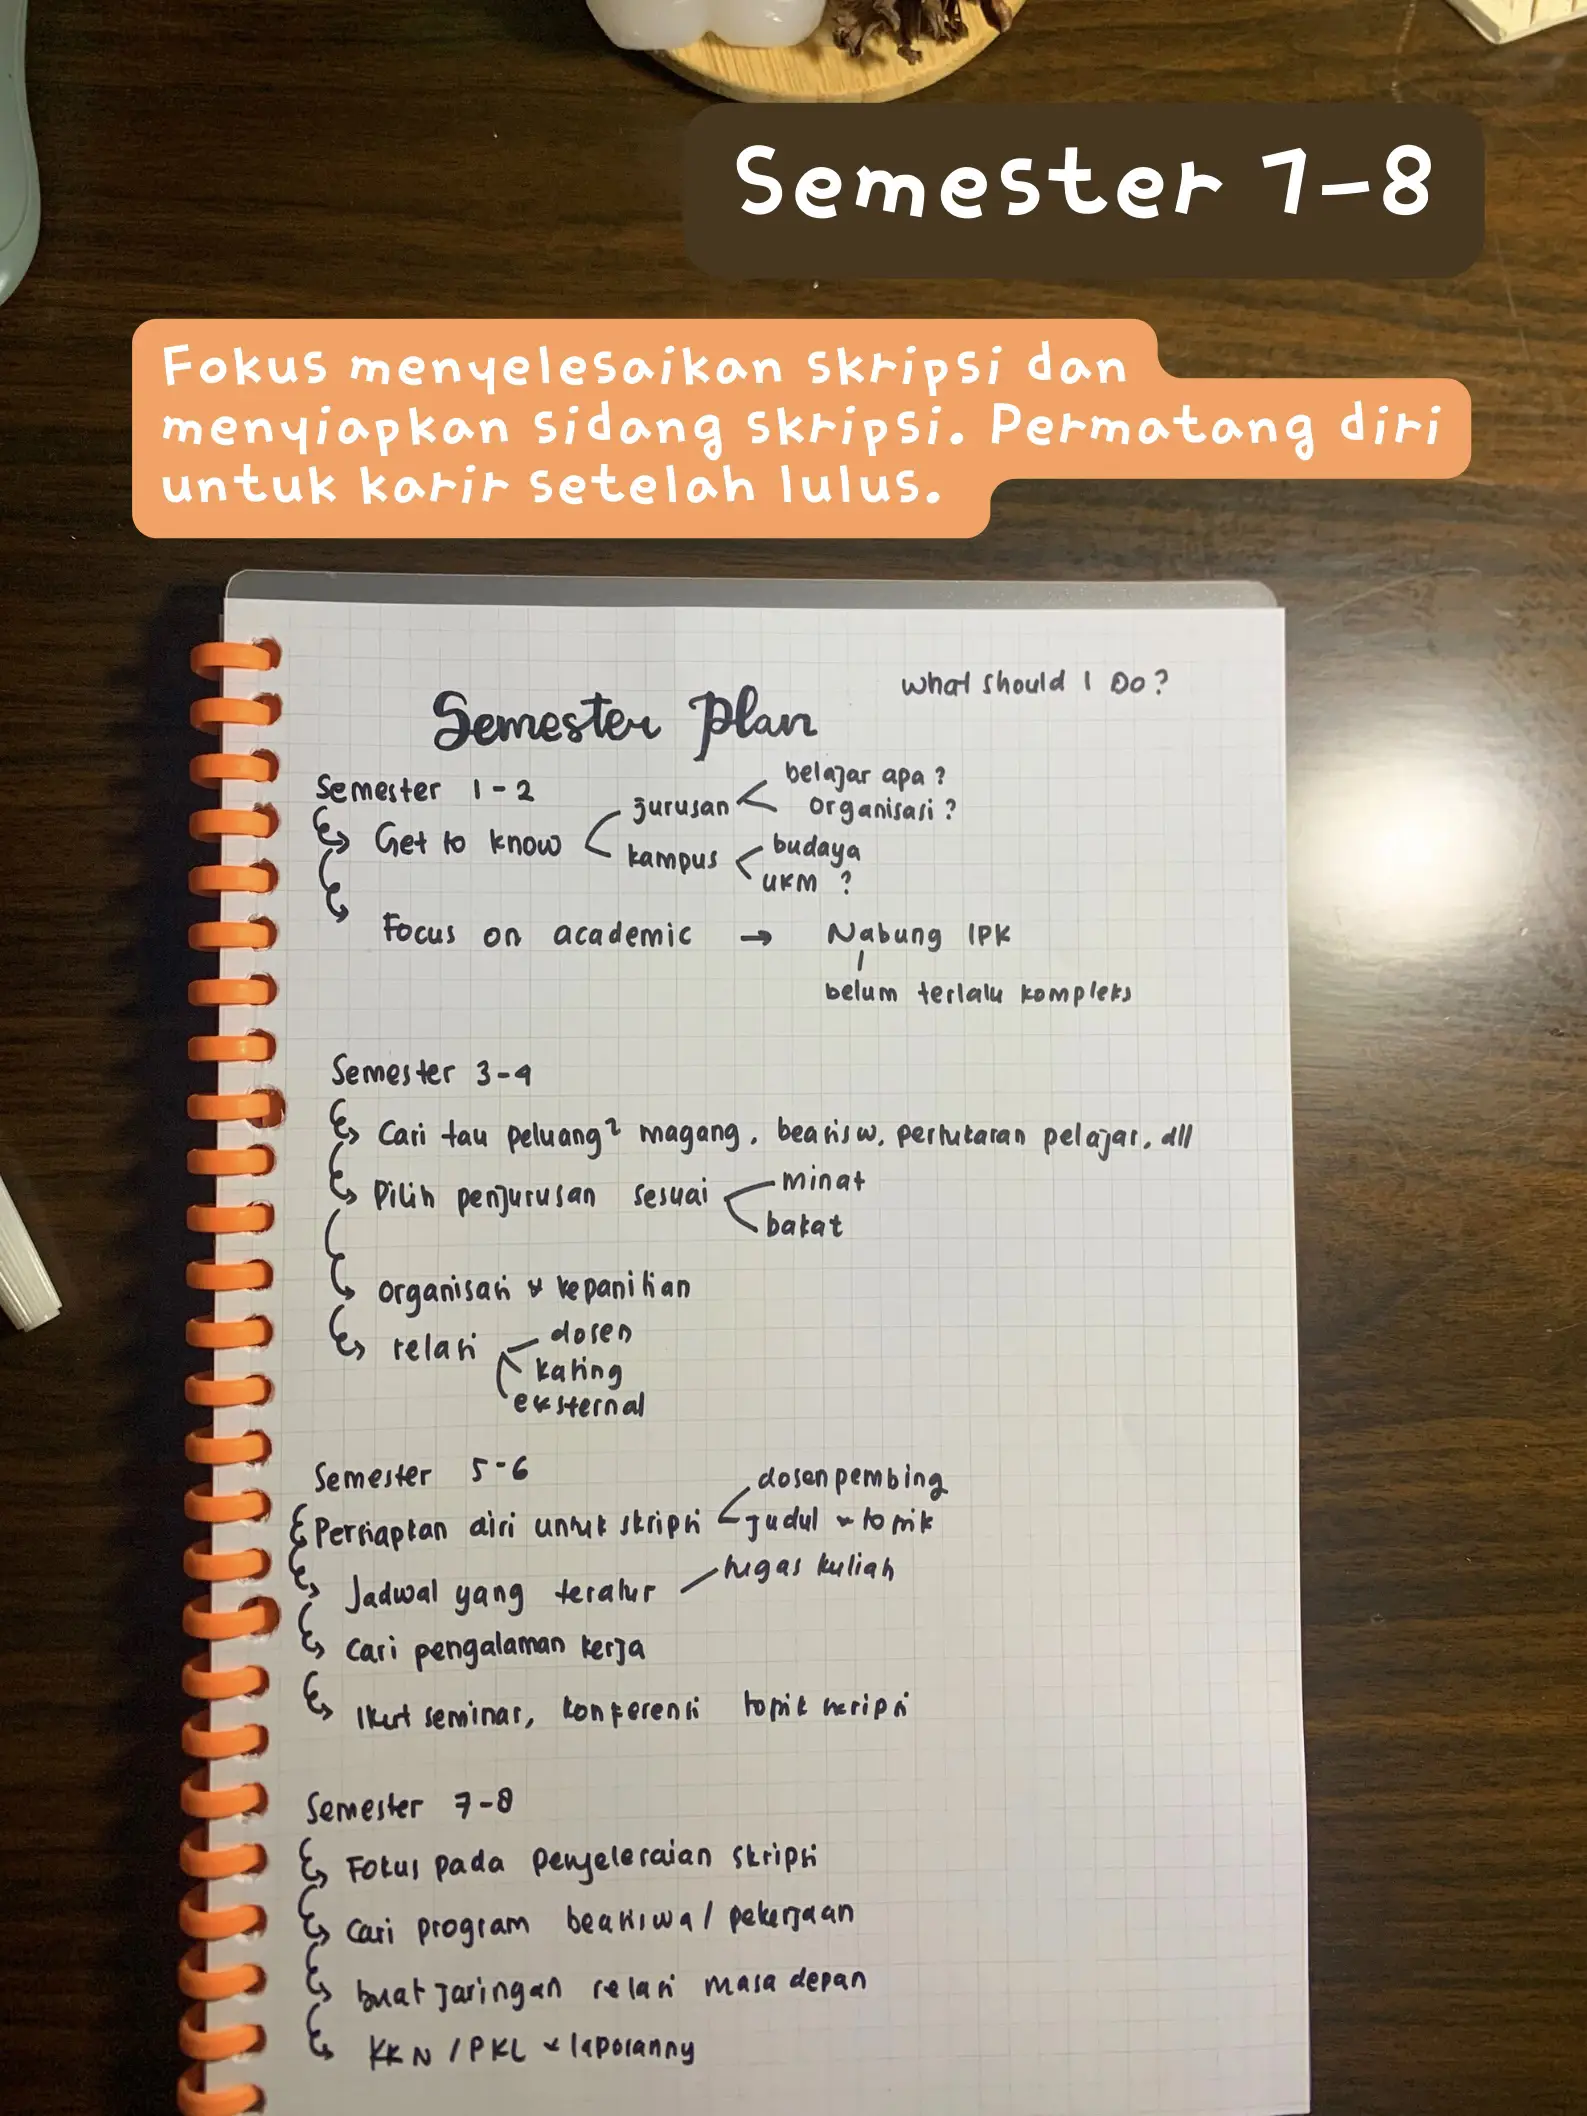 Semester 7-8
Fokus menyelesaikan skripsi dan
menyiapkan sidang skripsi. Permatang diri
untuk karir setelah lulus.
What should I Do?
Semester Plan
Semester 1-2
Get to know
jurusan
belajar apa?
organisasi?
kampus
budaya
UKM ?
Focus on academic → Nabung IPK
belum terlalu kompleks
Semester 3-4
Cari tau peluang² magang, beasisw, pertukaran pelajar, dll
Pilih penjurusan sesuai
minat
bakat
organisasi & kepanitian
relasi
dosen
kating
eksternal
Semester 5-6
Persiapkan diri untuk skripsi
dosen pembing
judul & topik
Jadwal yang teratur
tugas kuliah
Cari pengalaman kerja
Ikut seminar, konferensi topik skripsi
Semester 7-8
Fokus pada penyelesaian skripsi
Cari program beasiswa / pekerjaan
buat jaringan relasi masa depan
KKN / PKL & laporanny